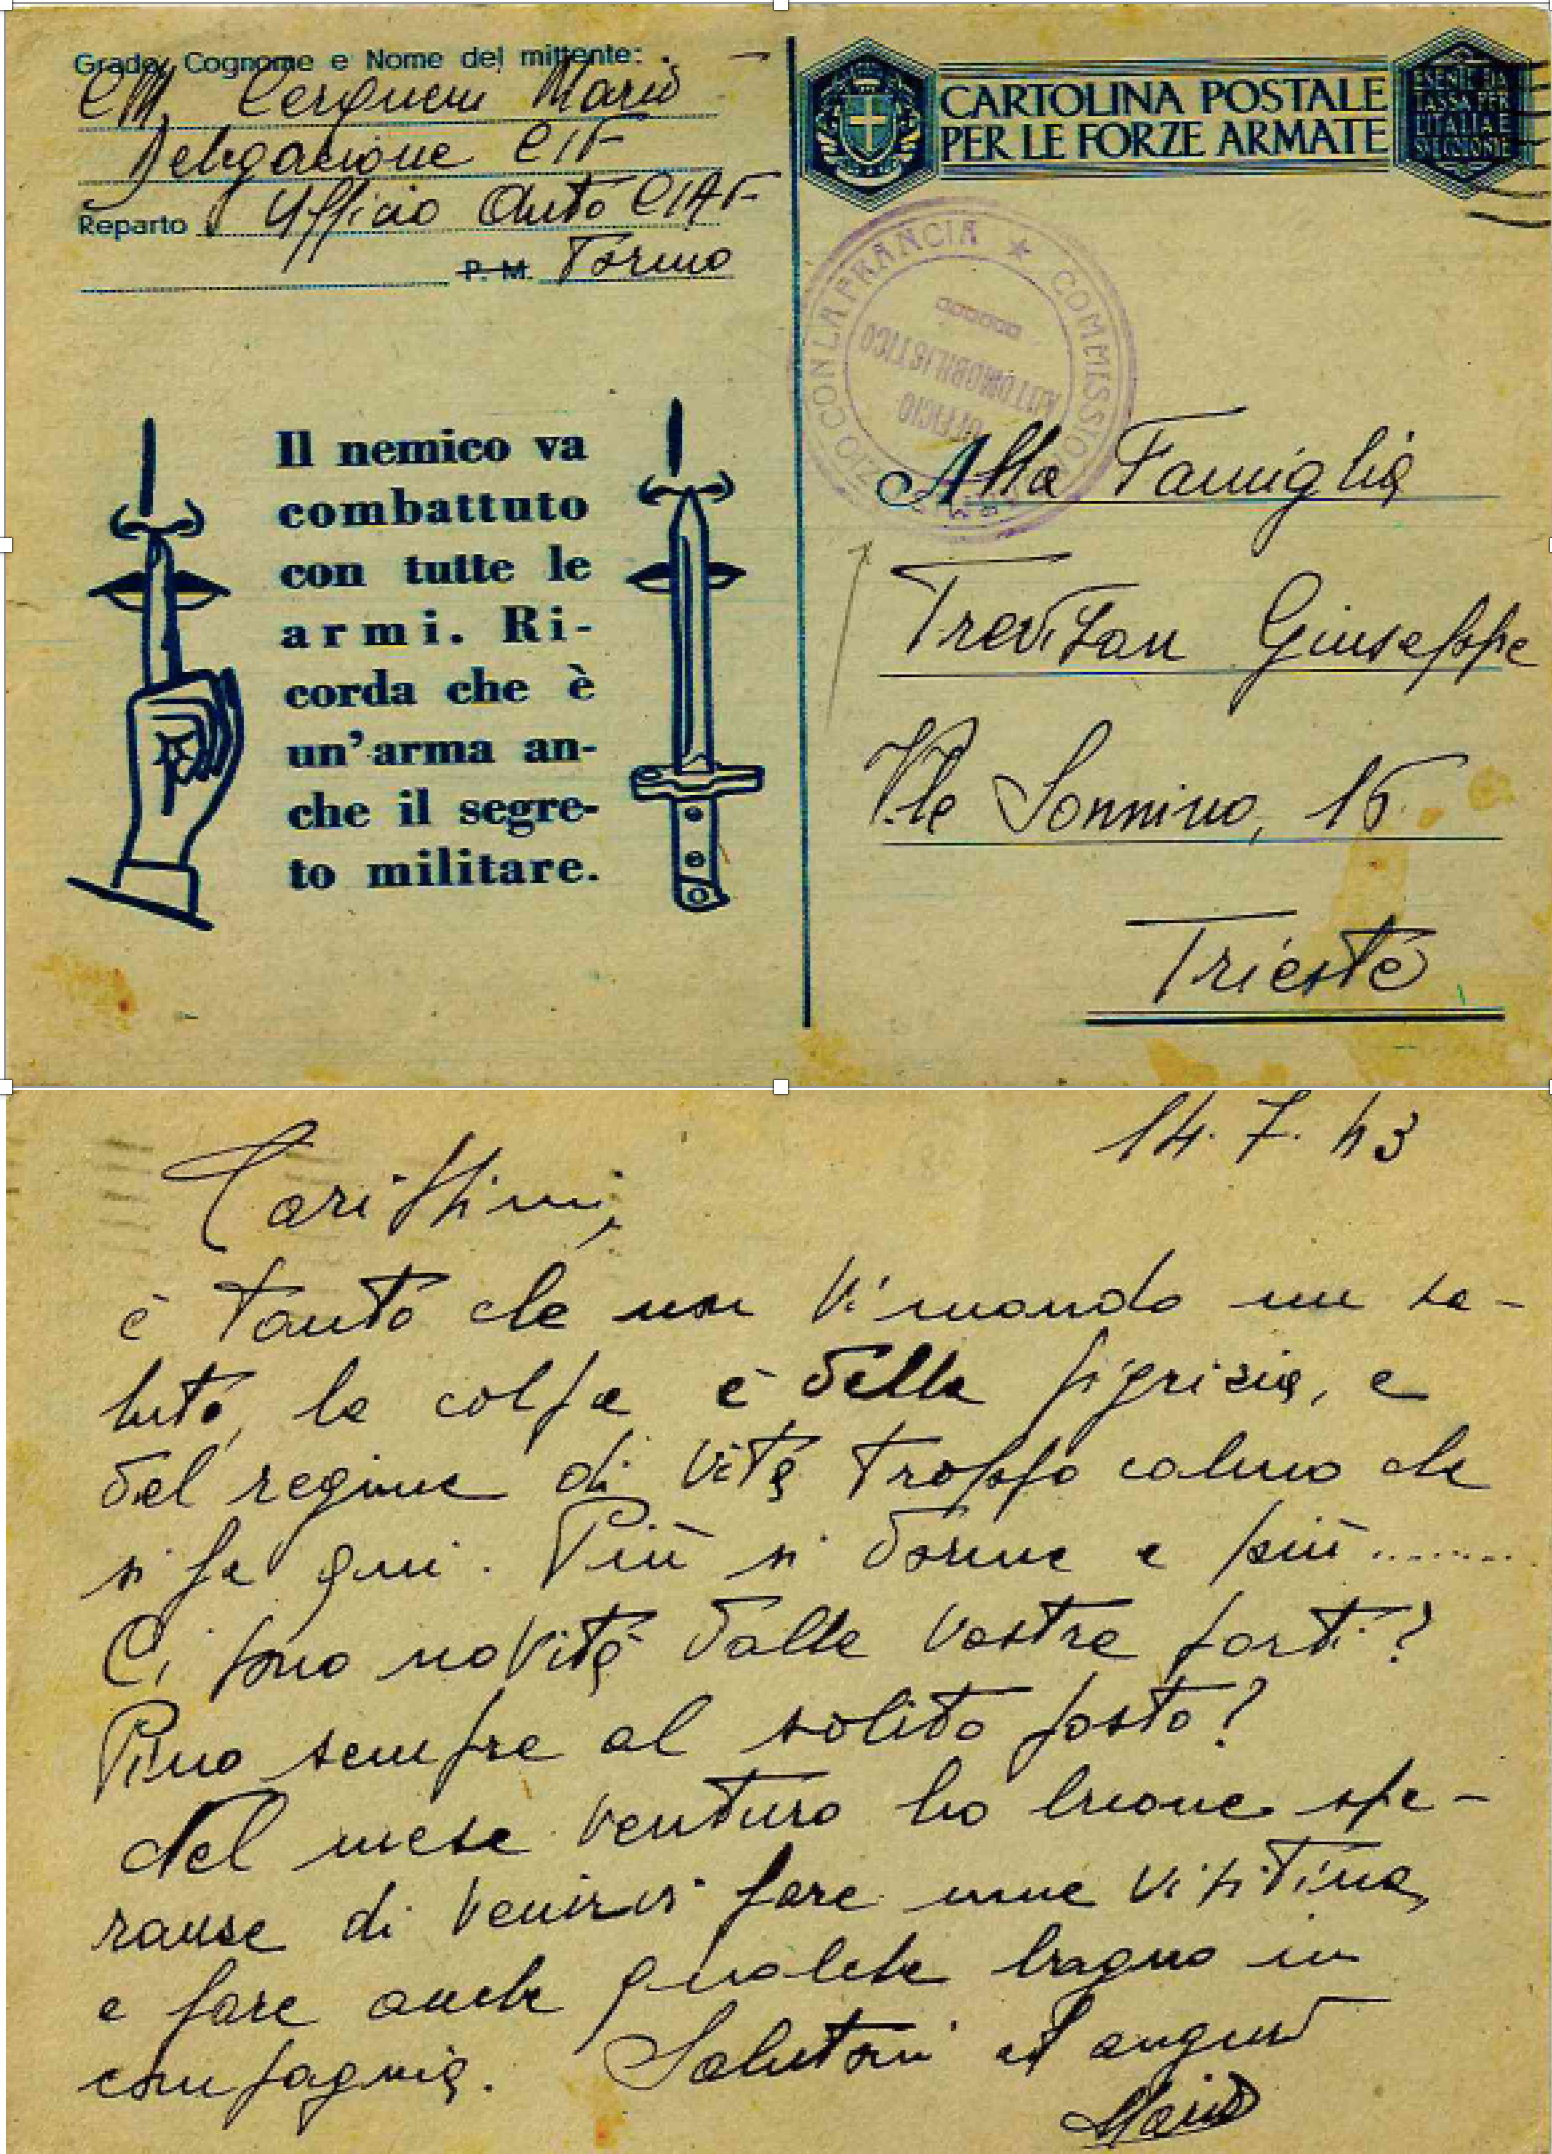 Grado, Cognome e Nome del mittente:
CM. Mario
Delegazione CIF
Reparto Ufficio Auto CIAF
P. M. Torino
Il nemico va
combattuto
con tutte le
armi. Ri-
corda che è
un'arma an-
che il segre-
to militare.
CARTOLINA POSTALE
PER LE FORZE ARMATE
ESENTE DA
TASSA PER
L'ITALIA E
COMMISSIONE CON LA FRANCIA
UFFICIO
AUTOMOBILISTICO
Alla Famiglia
Trevisan Giuseppe
V.le Sonnino, 15
Trieste
14.7.43
Carissimi,
è tanto che non Vi mando un sa-
luto, la colpa è della pigrizia, e
del regime di vita troppo calmo che
si fa qui. Più si dorme e più........
Ci sono novità dalle vostre parti?
Pino sempre al solito posto?
Nel mese venturo ho buone spe-
ranse di venirvi fare una visitina,
e fare anche qualche bagno in
compagnia. Salutoni ed auguri
Mario